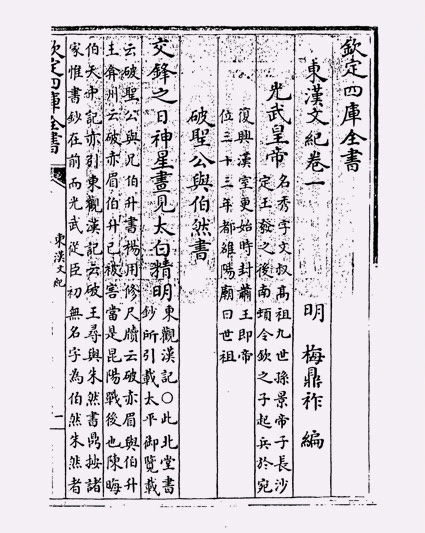 欽定四庫全書
東漢文紀卷一
明 梅鼎祚 編
光武皇帝
名秀字文叔高祖九世孫景帝子長沙
定王發之後南頓令欽之子起兵於宛
復興漢室更始時封蕭王即帝
位三十三年都雒陽廟曰世祖
破聖公與伯然書
交鋒之日神星晝見太白精明
東觀漢記○此北堂書
鈔所引載太平御覽載
云破聖公與况伯升書楊用修尺牘云破赤眉與伯升
王弇州云破赤眉伯升已被害當是昆陽戰後也陳晦
伯天中記亦引東觀漢記云破王尋與朱然書鼎按諸
家惟書鈔在前而光武從臣初無名字為伯然朱然者
欽定四庫全書
東漢文紀
一